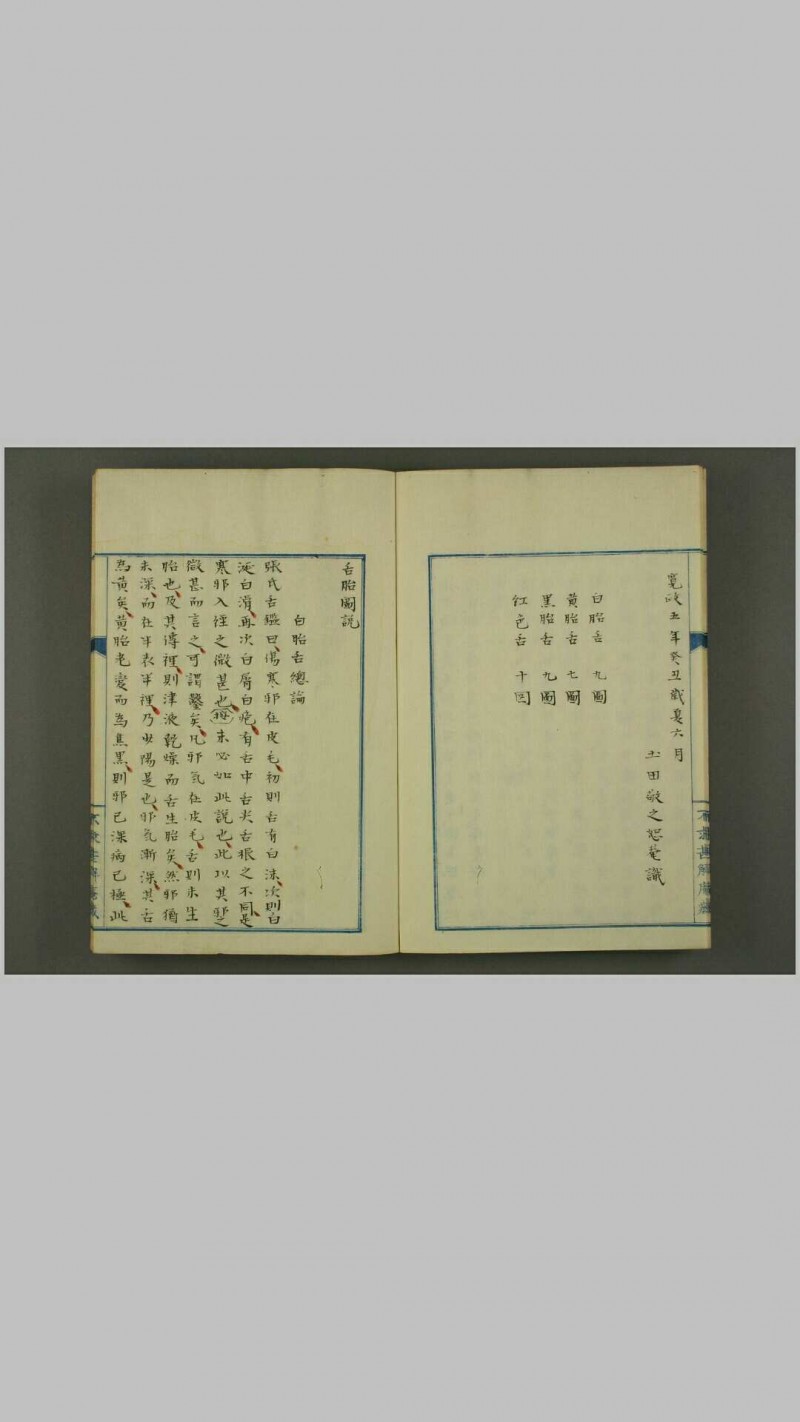 寛政五年癸丑歳夏六月
土田敬之恕菴識
白胎舌 九圖
黄胎舌 七圖
黒胎舌 九圖
紅色舌 十図
舌胎圖説
白胎舌總論
張氏舌鑑曰傷寒邪在皮毛初則舌有白沫次則白
涎白滑再次白屑白疱有舌中舌尖舌根之不同是
寒邪入裡之微甚也 未必如此説也此以其邪之
微甚而言之可謂鑿矣凡邪気在皮毛舌則未生
胎也及其傳裡則津液乾燥而舌生胎矣然邪猶
未深而在半表半裡乃少陽是也邪気漸深其舌
為黄矣黄胎老変而為焦黒則邪已深病已極此